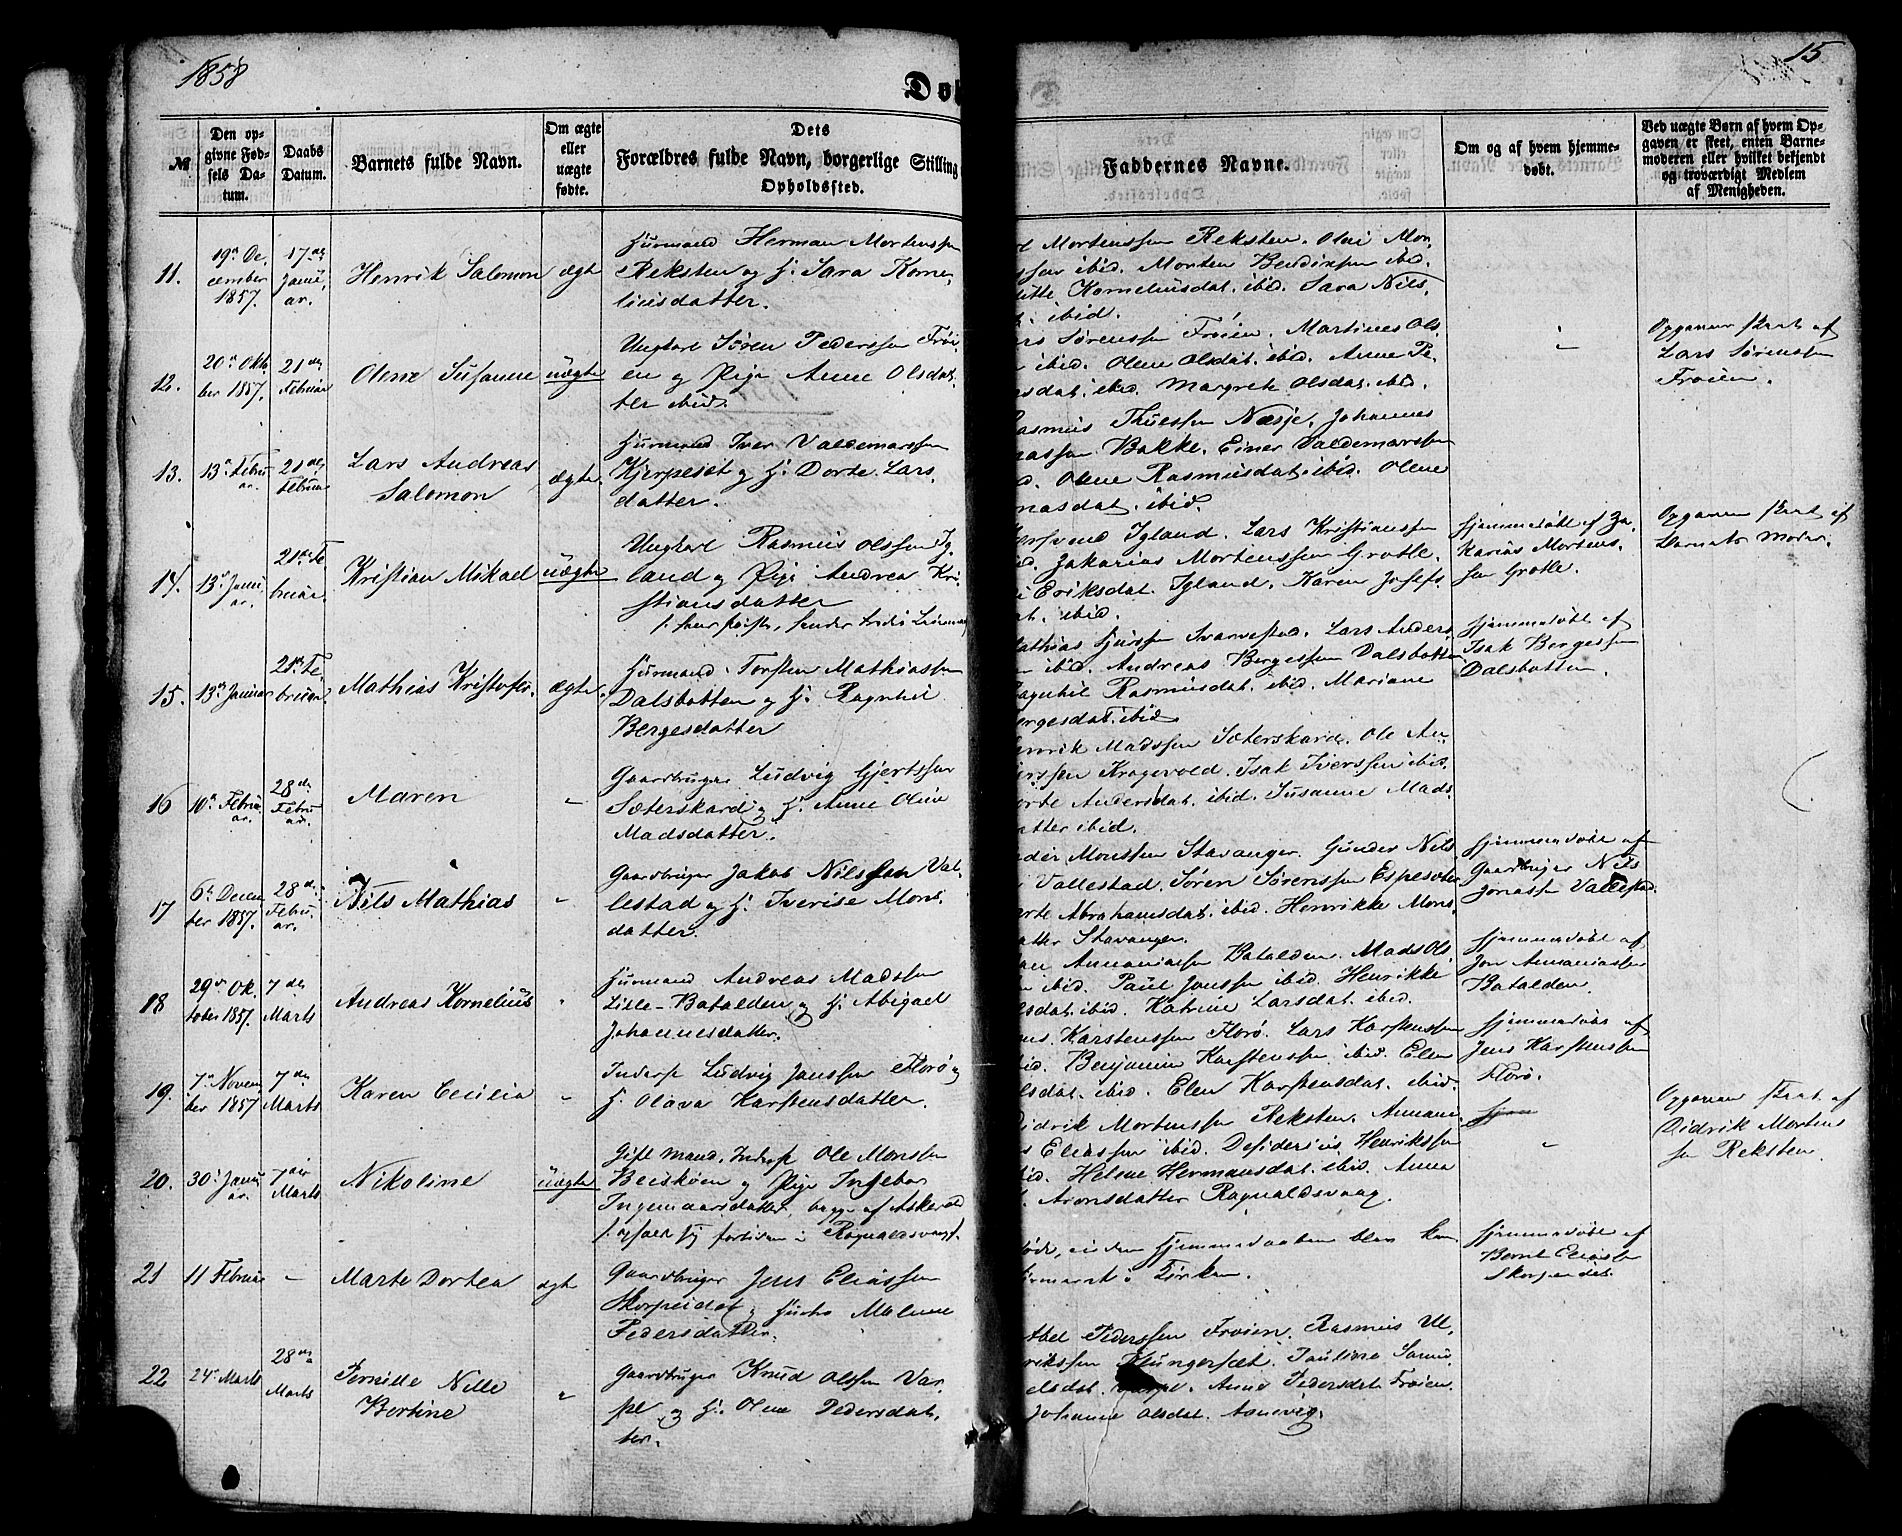 1858
15
Døb
№
Den op-
givne Fød-
sels Da-
tum.
Daabs
Datum.
Barnets fulde Navn.
Om ægte
eller
uægte
fødte.
Dets
Forældres fulde Navn, borgerlige Stilling
Opholdssted.
Faddernes Navne.
Om og af hvem hjemme-
døbt.
Ved uægte Børn af hvem Op-
gaven er skeet, enten Barne-
moderen eller hvilket bekjendt
og troværdigt Medlem
af Menigheden.
11.
19de De,
cember
1857.
17de
Janu,
ar.
Henrik Salomon
ægte
Huusmand Herman Mortenssen
Reksten og H. Sara Korne,
liusdatter.
Mortenssen Reksten. Olai Mor,
ibid. Morten Bendixsen ibid.
Korneliusdat. ibid. Sara Nils,
ibid.
12.
20de Okto
ber 1857.
21de
Februar
Olene Susanne
uægte
Ungkarl Søren Pederssen Frøi-
en og Pige Anne Olsdat,
ter ibid.
Sørenssen Frøien. Martines Ols,
ibid. Olene Olsdat. ibid. Anne Pe,
sdat. ibid. Margrete Olsdat. ibid.
Opgaven skeet af
Lars Sørenssen
Frøien.
13.
13de Febru
ar.
21de
Februar
Lars Andreas
Salomon
ægte.
Huusmand Iver Valdemarssen
Kjerpeset og H. Dorte Lars,
datter.
Rasmus Thuessen Næsje, Johannes
nassen Bakke. Einer Valdemarssen
Olene Rasmusdat. ibid. Olene
nasdat. ibid.
14.
13de Janu
ar.
21de Fe
bruar.
Kristian Mikael
uægte
Ungkarl Rasmus Olssen Ig,
land og Pige Andrea Kri,
stiansdatter
Igland. Lars Kristianssen
Zakarias Mortenssen Grotle.
Eriksdat. Igland. Karen Josefs
ibid.
Hjemmedøbt af Za,
karias Mortens,
sen Grotle.
Opgaven skeet af
Barnets Moder.
15.
13de Januar
21de Fe,
bruar.
Mathias Kristoffer.
ægte
Huusmand Torsten Mathiassen
Dalsbotten og H. Ragnhil
Bergesdatter
Mathias Svarvestad. Lars Anders
ibid. Andreas Bergessen Dalsbotten
Ragnhil Rasmusdat. ibid. Mariane
Bergesdat. ibid
Hjemmedøbt af
Isak Bergessen
Dalsbotten.
16
10de Febru
ar.
28de
Febru
ar.
Maren
"
Gaardbruger Ludvig Gjertssen
Sæterskard og H. Anne Oline
Madsdatter.
Henrik Madssen Sæterskard. Ole An,
derssen Kragevold. Isak Iverssen ibid.
Andersdat. ibid. Susanne Mads,
datter ibid.
17
6te Decem
ber 1857.
28de
Febru,
ar.
Nils Mathias
"
Gaardbruger Jakob Nilssen Val-
lestad og H. Iverise Mons,
datter.
Monssen Stavanger. Gunder Nils
Vallestad. Søren Sørenssen Espeseter
Abrahamsdat. ibid. Henrikke Mons,
datter Stavanger.
Hjemmedøbt af
Gaardbruger Nils
Jonassen Vallestad.
18
29de Ok.
tober 1857.
7de
Marts
Andreas Kornelius
"
Huusmand Andreas Madssen
Lille-Batalden og H. Abigael
Johannesdatter.
Annaniassen Batalden. Mads Ols,
ibid. Paul Janssen ibid. Henrikke
sdat. ibid. Katrine Larsdat. ibid.
Hjemmedøbt af
Jon Annaniassen
Batalden.
19.
7de Novem
ber 1857
7de
Marts
Karen Cecilia
"
Inderst Ludvig Janssen Florø og
H. Olava Karstensdatter.
Karstenssen Florø. Lars Karstenssen
ibid. Benjamin Karstenssen ibid. Elen
sdat. ibid. Elen Karstensdat. ibid.
Hjemmedøbt af
Jens Karstenssen
Florø.
20.
30te Janu
ar.
7de
Marts
Nikoline
uægte
Gift Mand, Inderst Ole Monssen
og Pige Ingebor
Ingemaarsdatter, begge af Askevold
opholde sig fortiden i Rognaldsvaag.
Didrik Mortenssen Reksten. Annani
Eliassen ibid. Desiderius Henrikssen
ibid. Helene Hermansdat. ibid. Anna
Aronsdatter Rognaldsvaag.
"
Opgaven skeet af
Didrik Mortens
sen Reksten.
21
11 Februar
"
Marte Dortea
ægte
Gaardbruger Jens Eliassen
Skorpeidet og Hustru Malene
Pedersdatter.
død, inden Hjemmedaaben blev kon
firmeret i Kirken.
Hjemmedøbt af
Bernt Eliassen
Skorpeidet.
22
24de Marts
28de
Marts
Pernille Nille
Bertine
"
Gaardbruger Knud Olssen Var,
pe og H. Olene Pedersdat,
ter.
Abel Pederssen Frøien. Rasmus Ul,
rikssen Klungersæt. Pauline Samu,
elsdat. Varpe. Anne Pedersdat. Frøien.
Johanne Olsdat. Aanevig.